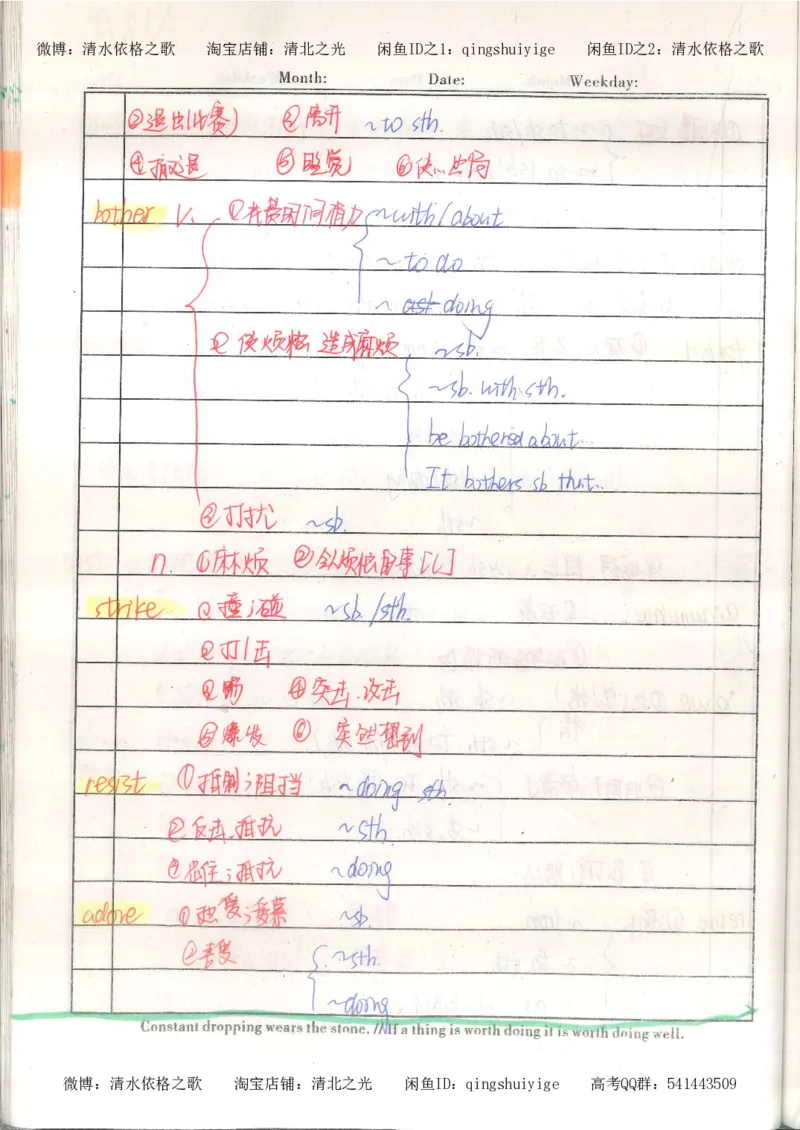 微博：清水依格之歌 淘宝店铺：清北之光 闲鱼ID之1：qingshuiyige 闲鱼ID之2：清水依格之歌
Month: Date: Weekday:
③退出(比赛) ②离开 ~to sth.
④撤退 ⑤睡觉 ⑥使…出局
bother v. ①花费时间精力 ~with/about
~to do
~ doing
② 使烦恼 造成麻烦 ~sb.
~sb. with sth.
be bothered about...
It bothers sb that...
③打扰 ~sb.
n. ①麻烦 ②令烦恼的事[C]
strike ①撞；碰 ~sb./sth.
②打/击
③踢 ④突击.攻击
⑤爆发 ⑥ 突然想到
resist ①抵制；阻挡 ~doing sth.
②反击.抵抗 ~sth
③忍住；抵抗 ~doing
adore ①热爱；爱慕 ~sb.
②喜爱 ~sth.
~doing
Constant dropping wears the stone. // If a thing is worth doing it is worth doing well.
微博：清水依格之歌 淘宝店铺：清北之光 闲鱼ID：qingshuiyige 高考QQ群：541443509